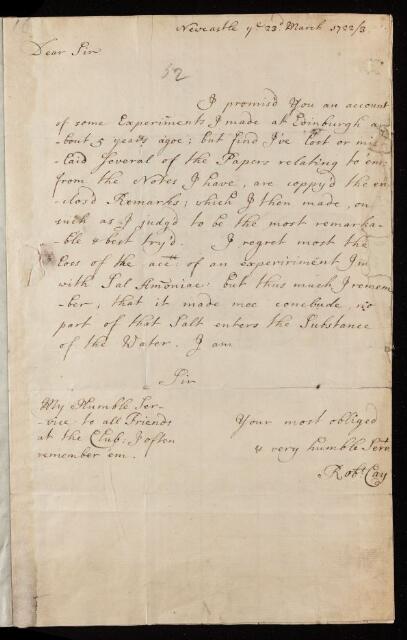 Newcastle ye 23d March 1722/3
Dear Sir
52
I promisd You an account
of some Experiments I made at Edinburgh a-
bout 5 years agoe; but find I've lost or mis-
-laid several of the Papers relating to em:
from the Notes I have, are coppy'd the en-
-closd Remarks; which I then made, on
such as I judg'd to be the most remarka-
ble & best try'd. I regret most the
Loss of the acctt: of an expeririment I
with Sal Amōniac: but thus much I remem-
ber, that it made mee conclude, no
part of that Salt enters the Substance
of the Water. I am
Sir
My Humble Ser-
-vice to all Friends
at the Club; I often
remember em.
Your most obliged
& very humble Servt
Robt. Cay